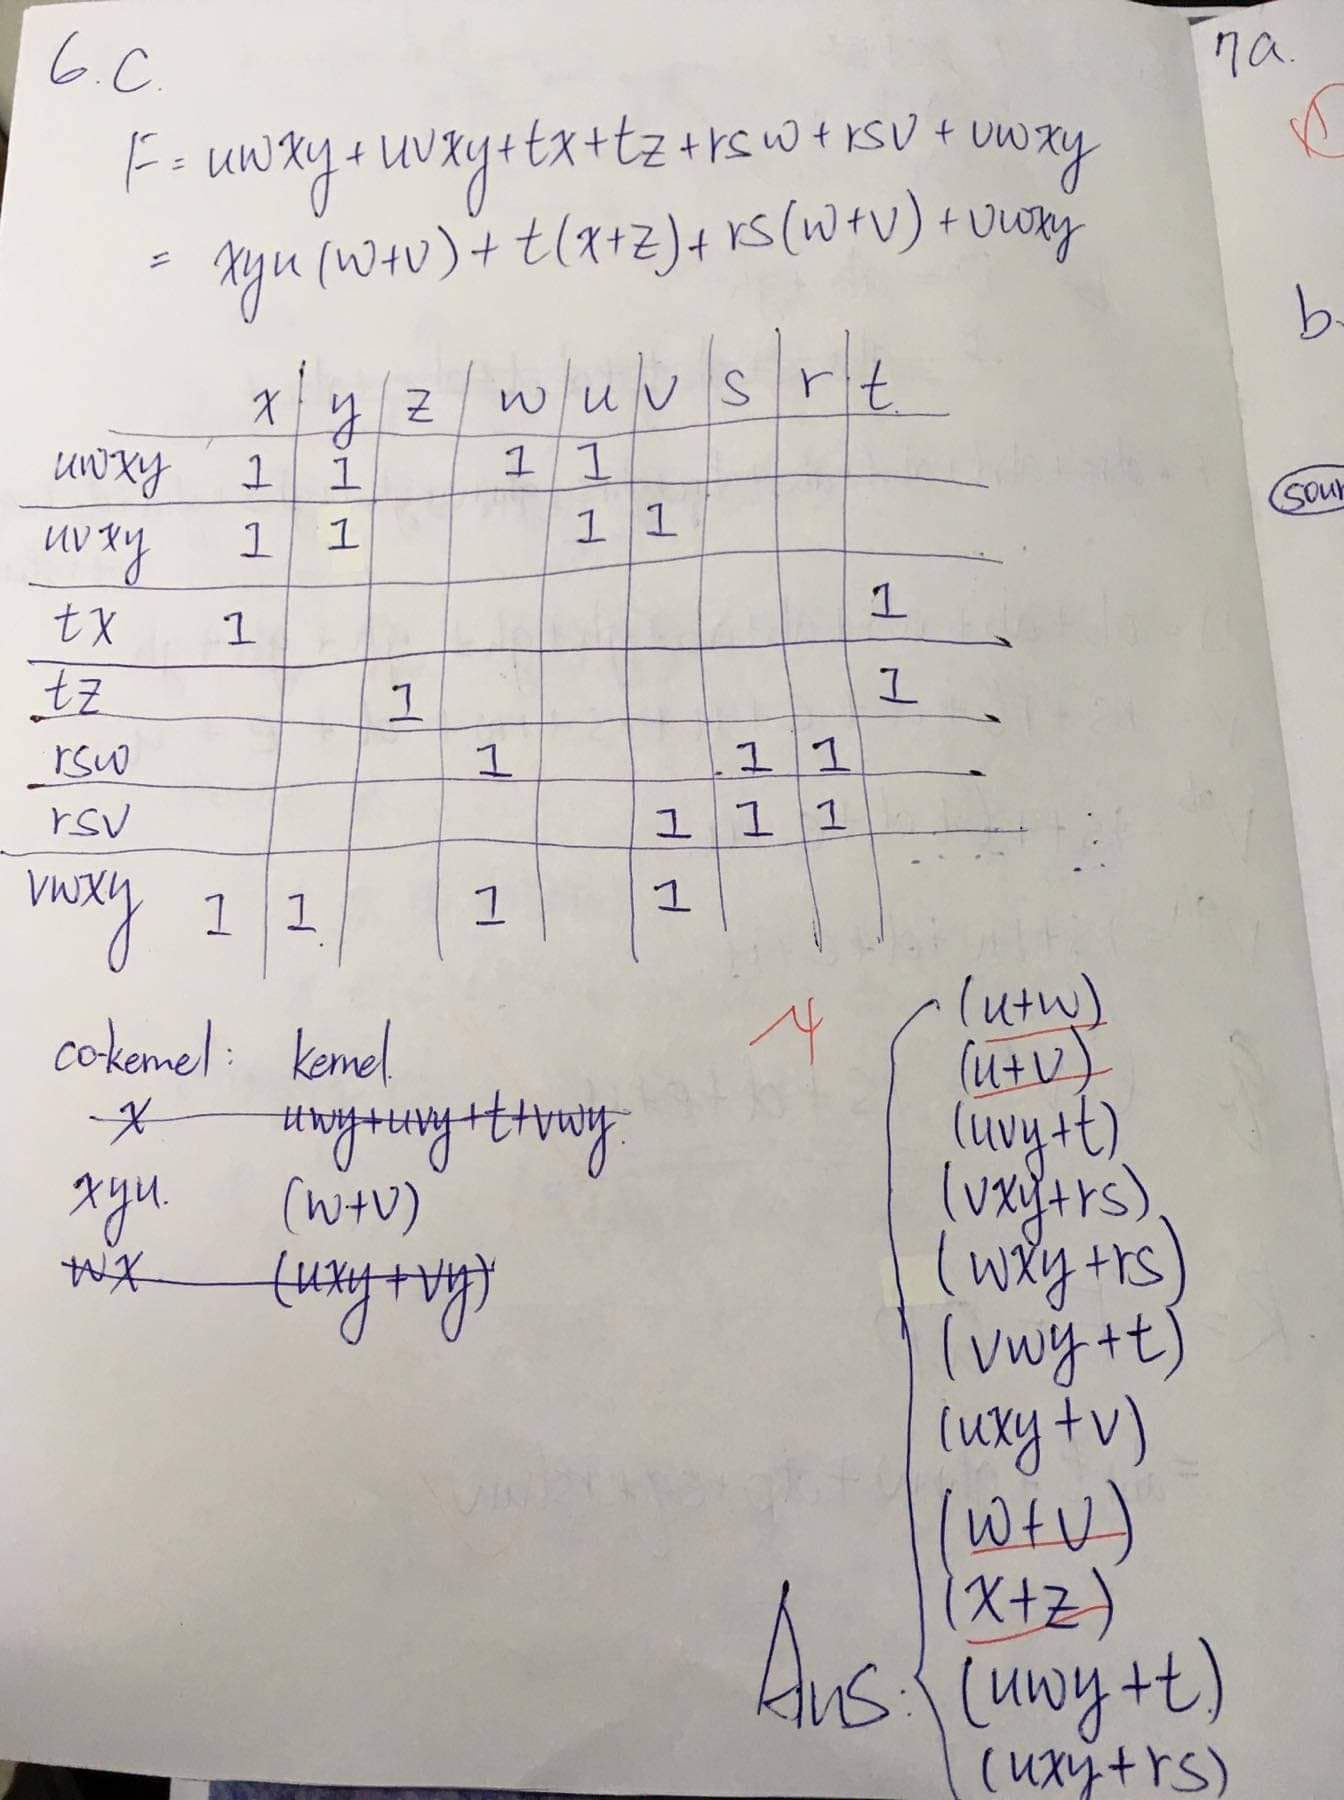 6.C.
F = uwxy + uvxy + tx + tz + rsw + rsv + vwxy
= xyu(w+v) + t(x+z) + rs(w+v) + vwxy
x y z w u v s r t
uwxy 1 1 1 1
uvxy 1 1 1 1
tx 1 1
tz 1 1
rsw 1 1 1
rsv 1 1 1
vwxy 1 1 1 1
co-kernel: kernel
x uwy+uvy+t+vwy
xyu. (w+v)
wx (uxy+vy)
Ans:
(u+w)
(u+v)
(uvy+t)
(vxy+rs)
(wxy+rs)
(vwy+t)
(uxy+v)
(w+v)
(x+z)
(uwy+t)
(uxy+rs)
7a.
b.